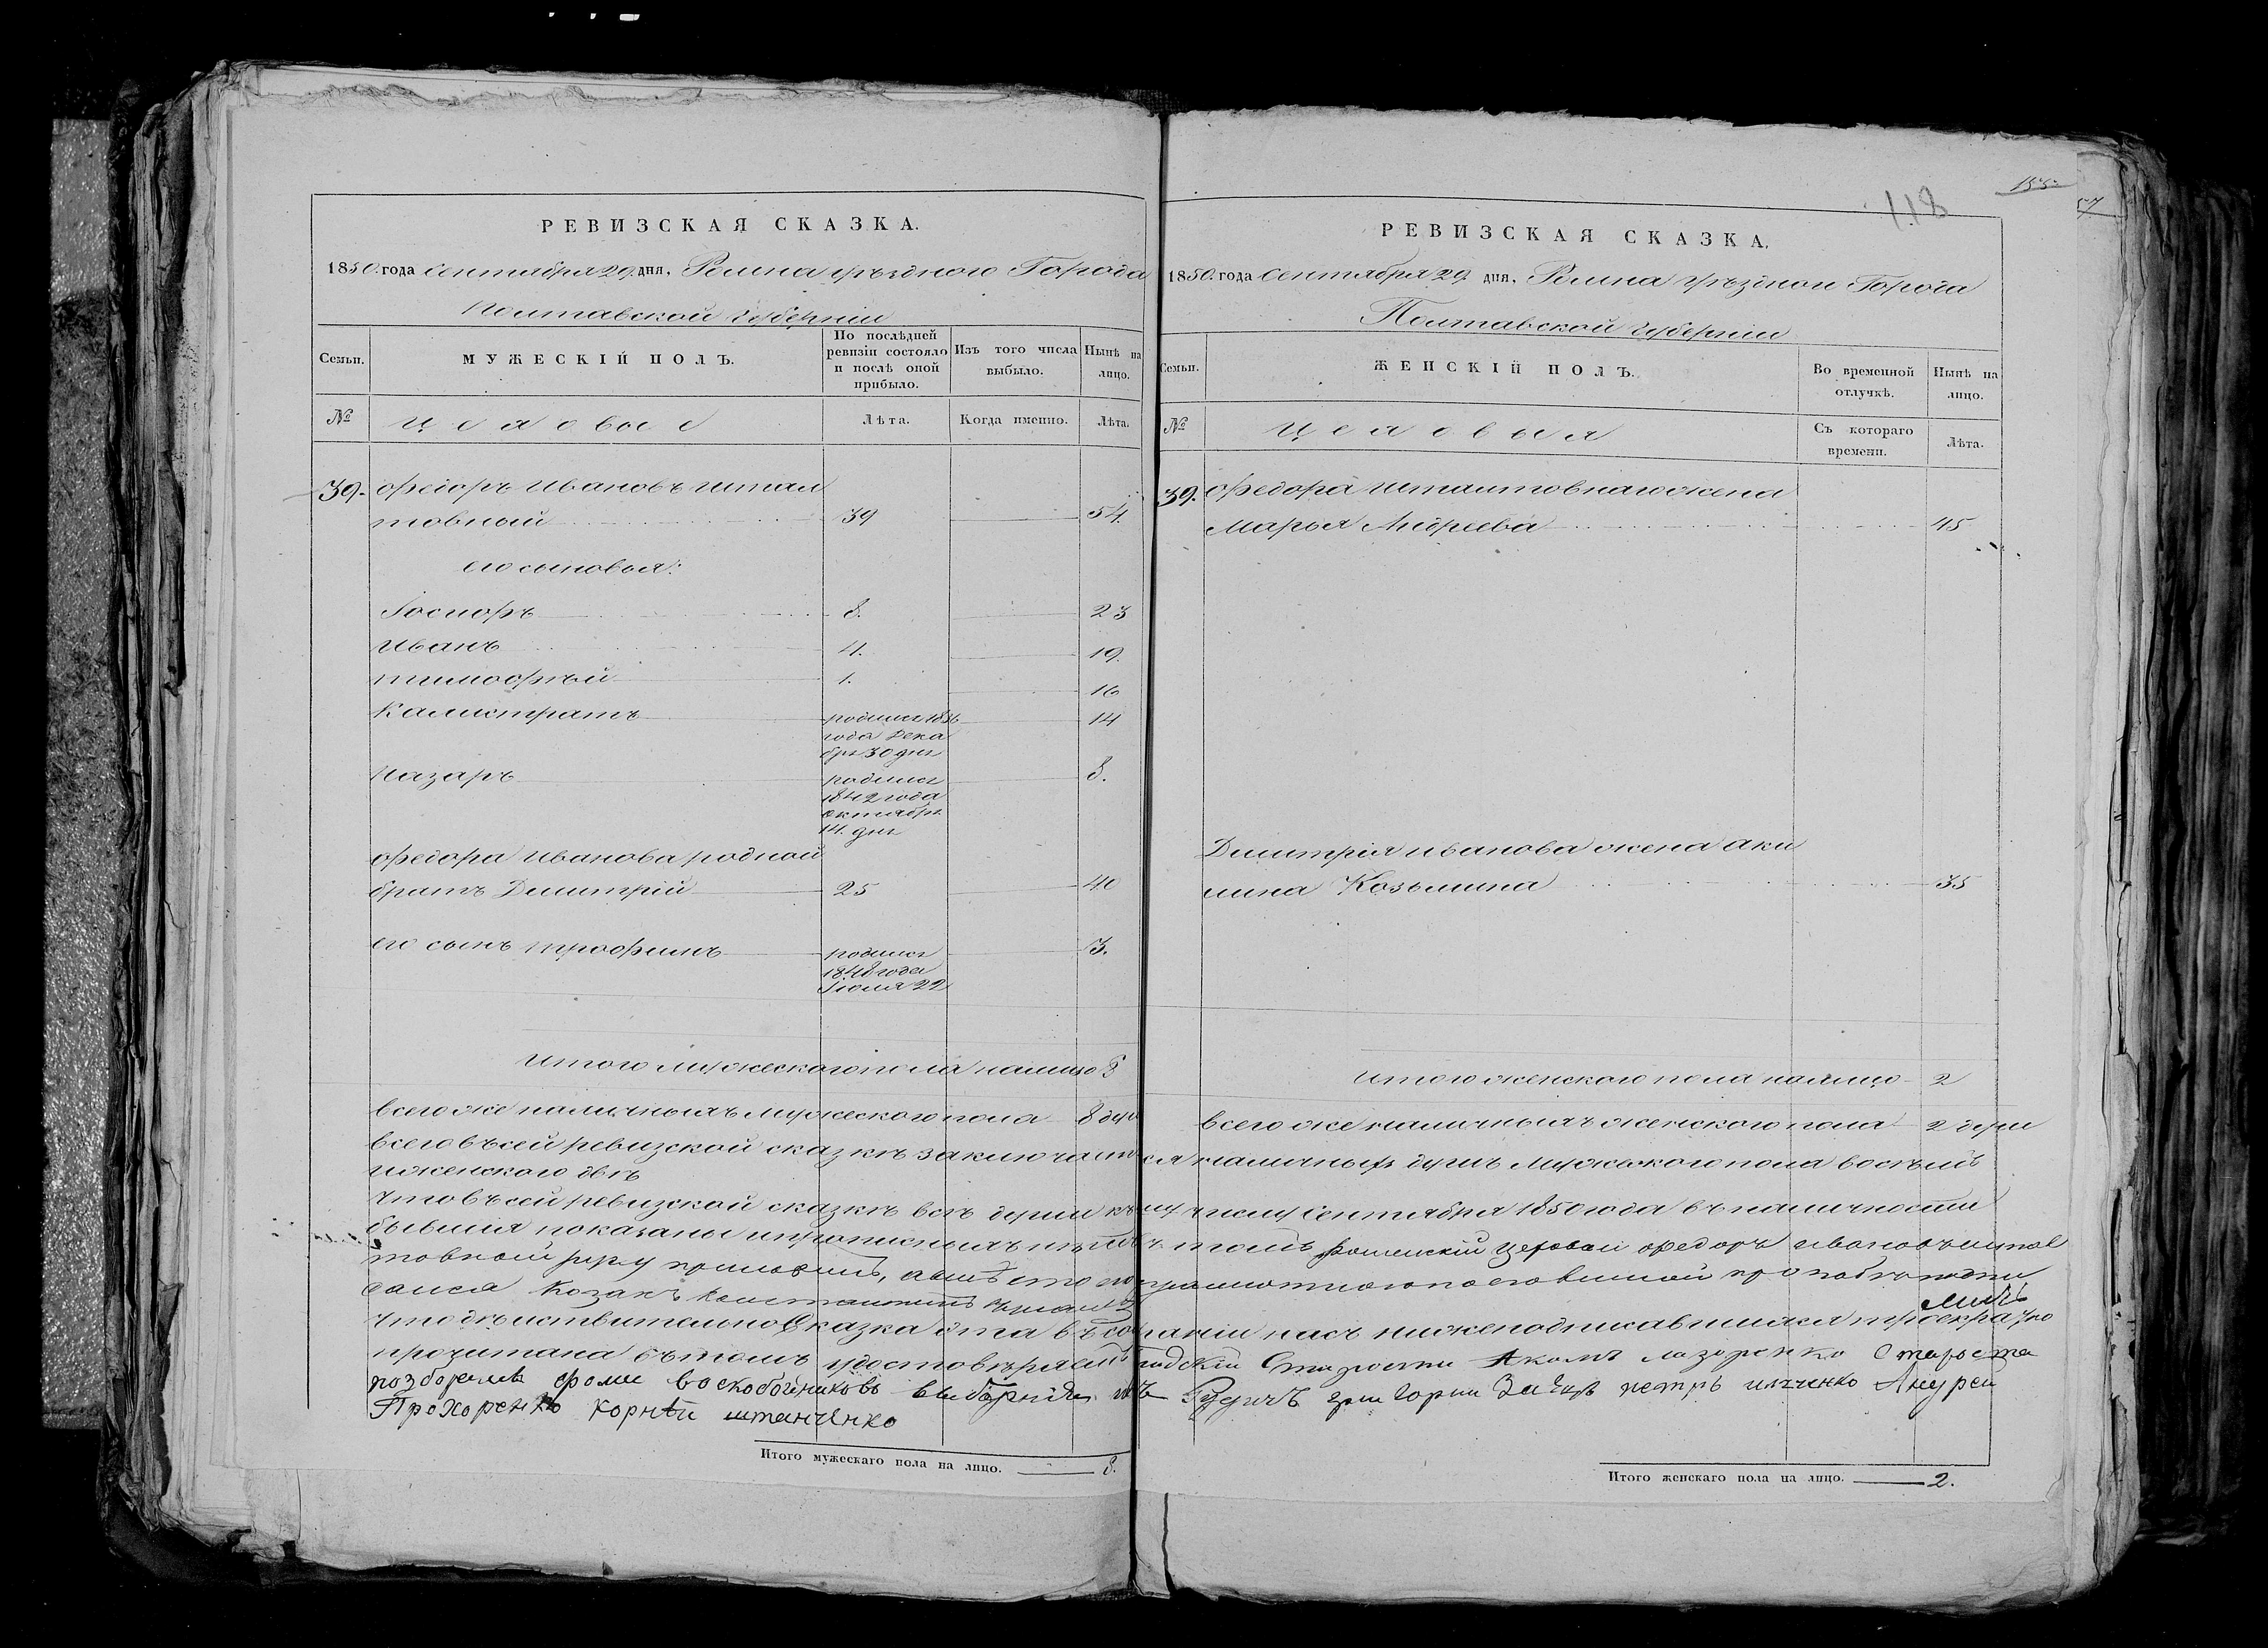 118
РЕВИЗСКАЯ СКАЗКА.
1850. года Сентября 29. дня, Ромна уѣзднаго Города
Полтавской губерніи
Семьи.
МУЖЕСКІЙ ПОЛЪ.
По послѣдней ревизіи состояло и послѣ оной прибыло.
Изъ того числа выбыло.
Нынѣ на лицо.
№
Цеховые
Лѣта.
Когда именно.
Лѣта.
39. Федоръ Ивановъ Штал
товный 39 54.
его сыновья:
Іосифъ 8. 23
Иванъ 4. 19.
Тимофѣй 1. 16
Калистратъ родился 1836 14
года Дека
бря 30 дня
Назаръ родился 8.
1842 года
Октября
14. дня
Федора Иванова родной
братъ Димитрій 25 40
его сынъ Трофимъ родился 3.
1848 года
Іюля 22
Итого мужескаго пола налицо 8
Всего же наличныхъ мужескаго пола 8 душ
РЕВИЗСКАЯ СКАЗКА.
1850. года Сентября 29. дня, Ромна уѣзднаго Города
Полтавской губерніи
Семьи.
ЖЕНСКІЙ ПОЛЪ.
Во временной отлучкѣ.
Нынѣ на лицо.
№
Цеховыя
Съ котораго времени.
Лѣта.
39. Федора Шталтовнаго жена
Марья Андреева 45
Димитрія Иванова жена Аки
лина Козьмина 35
Итого женскаго пола налицо 2
Всего же наличныхъ женскаго пола 2 души
Всего въ сей ревизской сказкѣ заключается наличныхъ душъ мужескаго пола восемь
и женскаго двѣ
Что въ сей ревизской сказкѣ всѣ души къ числу Сентября 1850 года въ наличности
бывшія показаны и прописныхъ нѣтъ въ томъ роменскій цеховой Федоръ Ивановъ Штал
товной руку приложилъ, а вмѣсто его неграмотнаго по его личной прозбѣ подпи
сался Козакъ Константинъ
Что дѣиствительно Сказка эта въ собраніи насъ нижеподписавшихся трое кратно
прочитана въ томъ удостовѣряемъ Градскій Староста Лазоренко Староста
Фома Воскобойниковъ Выборніи Григорій Заецъ Петръ Илченко Андрей
Прохоренко Корнѣй Штанченко
Итого мужескаго пола на лицо. 8.
Итого женскаго пола на лицо. 2.